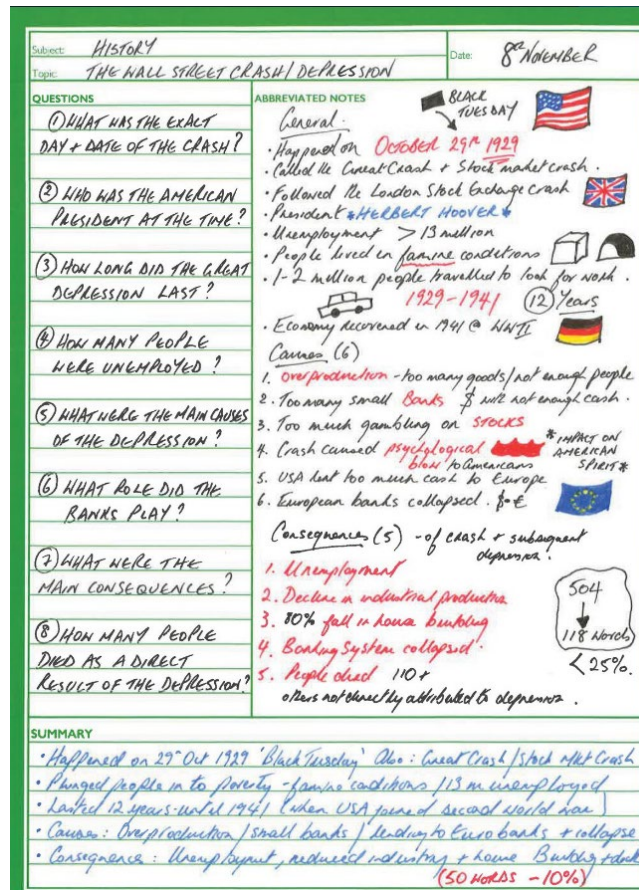 Subject: HISTORY
Date: 8th NOVEMBER
Topic: THE WALL STREET CRASH/DEPRESSION
QUESTIONS
① WHAT WAS THE EXACT
DAY + DATE OF THE CRASH?
② WHO WAS THE AMERICAN
PRESIDENT AT THE TIME?
③ HOW LONG DID THE GREAT
DEPRESSION LAST?
④ HOW MANY PEOPLE
WERE UNEMPLOYED?
⑤ WHAT WERE THE MAIN CAUSES
OF THE DEPRESSION?
⑥ WHAT ROLE DID THE
BANKS PLAY?
⑦ WHAT WERE THE
MAIN CONSEQUENCES?
⑧ HOW MANY PEOPLE
DIED AS A DIRECT
RESULT OF THE DEPRESSION?
ABBREVIATED NOTES
BLACK
TUESDAY
General.
• Happened on OCTOBER 29th 1929
• Called the Great Crash + Stock market crash.
• Followed the London Stock Exchange crash
• President *HERBERT HOOVER*
• Unemployment > 13 million
• People lived in famine conditions
• 1-2 million people travelled to look for work.
1929-1941 12 Years
• Economy recovered in 1941 @ WWII
Causes (6)
1. Overproduction - too many goods/not enough people
2. Too many small Banks $ with not enough cash.
3. Too much gambling on STOCKS
4. Crash caused psychological
blow to Americans
*IMPACT ON
AMERICAN
SPIRIT*
5. USA lent too much cash to Europe
6. European banks collapsed. $→€
Consequences (5) - of crash + subsequent
depression.
1. Unemployment
2. Decline in industrial production
3. 80% fall in house building
4. Banking System collapsed.
5. People died 110+
others not directly attributed to depression.
504
118 words
< 25%.
SUMMARY
• Happened on 29th Oct 1929 'Black Tuesday' Also: Great Crash/Stock Mkt Crash
• Plunged people in to poverty - famine conditions / 13m unemployed
• Lasted 12 years - until 1941 (when USA joined second world war)
• Causes: Overproduction / small banks / lending to Euro banks + collapse
• Consequences: Unemployment, reduced industry + house Building +
(50 WORDS - 10%)